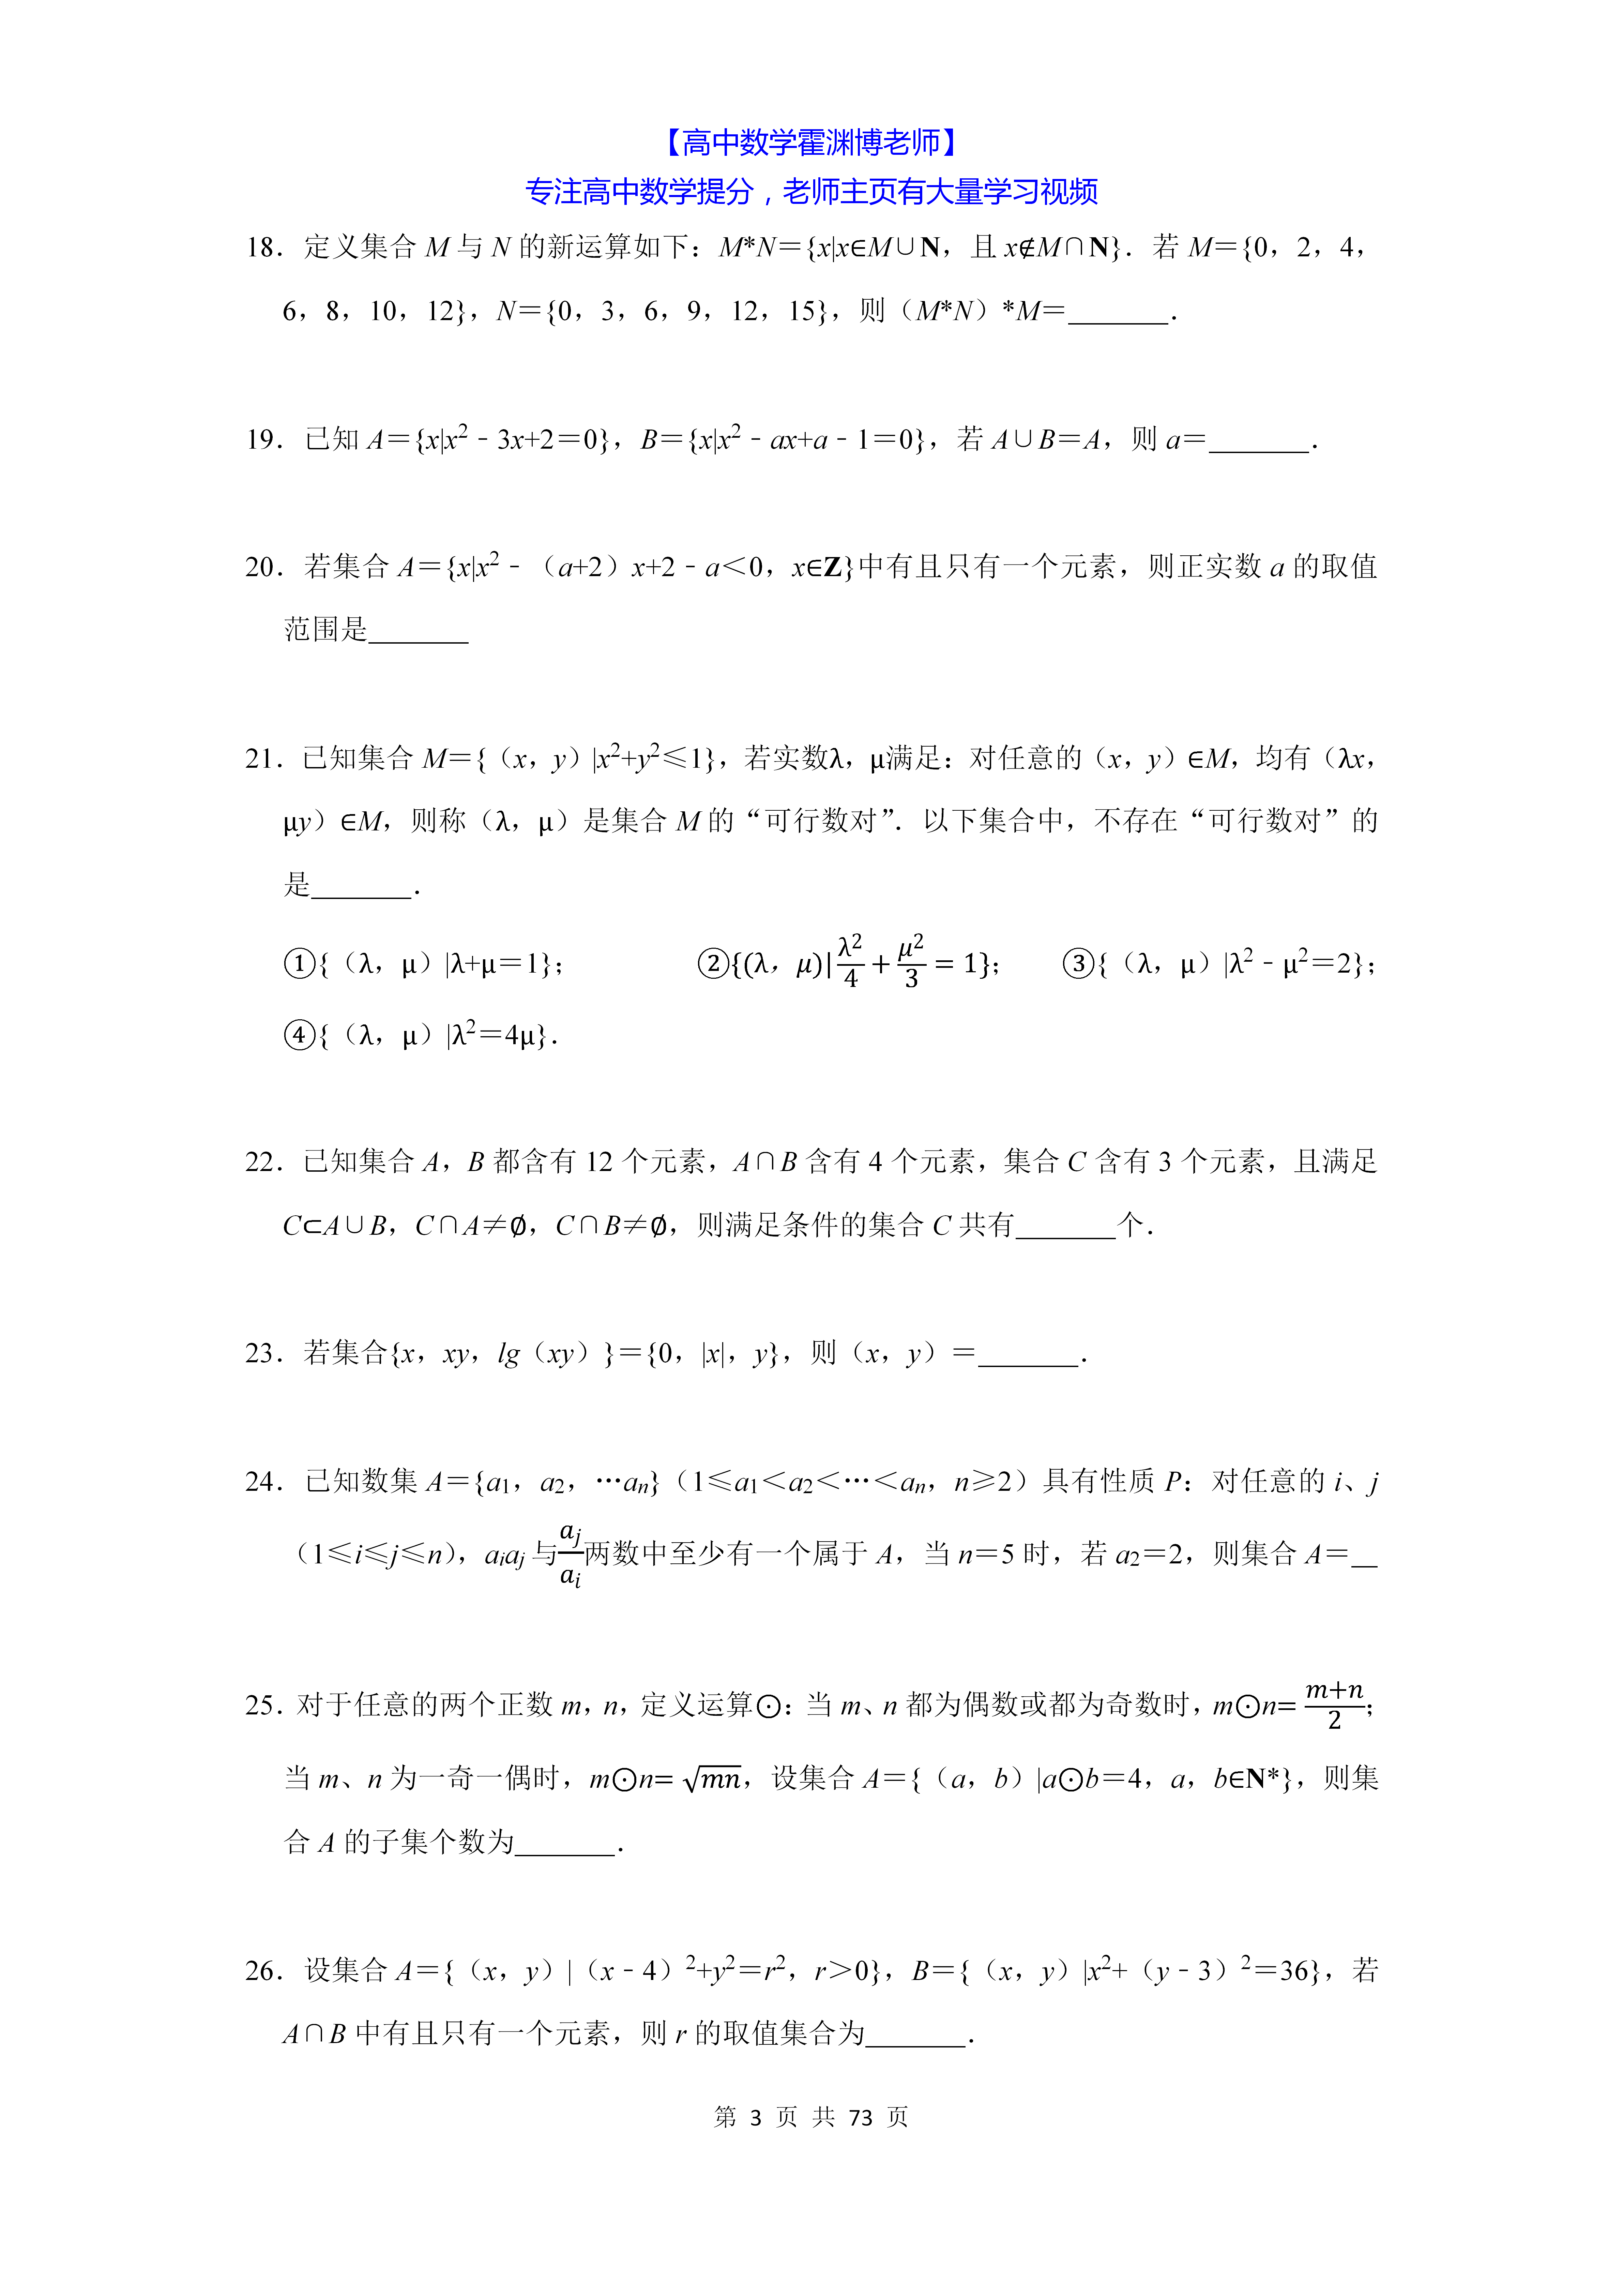 【高中数学霍渊博老师】
专注高中数学提分，老师主页有大量学习视频
18．定义集合 M 与 N 的新运算如下：M*N＝{x|x∈M∪N，且 x∉M∩N}．若 M＝{0，2，4，
6，8，10，12}，N＝{0，3，6，9，12，15}，则（M*N）*M＝_______．
19．已知 A＝{x|x²﹣3x+2＝0}，B＝{x|x²﹣ax+a﹣1＝0}，若 A∪B＝A，则 a＝_______．
20．若集合 A＝{x|x²﹣（a+2）x+2﹣a＜0，x∈Z}中有且只有一个元素，则正实数 a 的取值
范围是_______
21．已知集合 M＝{（x，y）|x²+y²≤1}，若实数λ，μ满足：对任意的（x，y）∈M，均有（λx，
μy）∈M，则称（λ，μ）是集合 M 的“可行数对”．以下集合中，不存在“可行数对”的
是_______．
①{（λ，μ）|λ+μ＝1}； ②{(λ，μ)|λ²/4 + μ²/3 = 1}； ③{（λ，μ）|λ²﹣μ²＝2}；
④{（λ，μ）|λ²＝4μ}．
22．已知集合 A，B 都含有 12 个元素，A∩B 含有 4 个元素，集合 C 含有 3 个元素，且满足
C⊂A∪B，C∩A≠∅，C∩B≠∅，则满足条件的集合 C 共有_______个．
23．若集合{x，xy，lg（xy）}＝{0，|x|，y}，则（x，y）＝_______．
24．已知数集 A＝{a₁，a₂，…aₙ}（1≤a₁＜a₂＜…＜aₙ，n≥2）具有性质 P：对任意的 i、j
（1≤i≤j≤n），aᵢaⱼ 与 aⱼ/aᵢ 两数中至少有一个属于 A，当 n＝5 时，若 a₂＝2，则集合 A＝__
25．对于任意的两个正数 m，n，定义运算⊙：当 m、n 都为偶数或都为奇数时，m⊙n= (m+n)/2；
当 m、n 为一奇一偶时，m⊙n= √mn，设集合 A＝{（a，b）|a⊙b＝4，a，b∈N*}，则集
合 A 的子集个数为_______．
26．设集合 A＝{（x，y）|（x﹣4）²+y²＝r²，r＞0}，B＝{（x，y）|x²+（y﹣3）²＝36}，若
A∩B 中有且只有一个元素，则 r 的取值集合为_______．
第 3 页 共 73 页